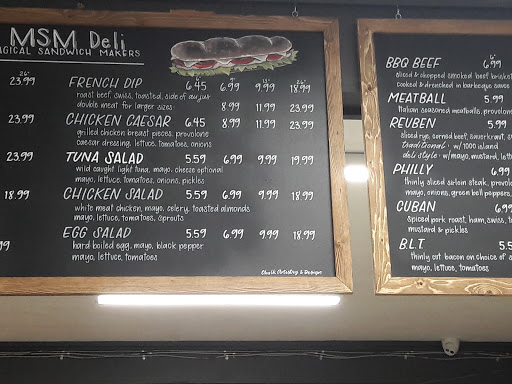 MSM Deli
MAGICAL SANDWICH MAKERS
26"
23.99
23.99
23.99
18.99
.99
4" 9" 13" 26"
FRENCH DIP 6.45 6.99 9.99 18.99
roast beef, swiss, toasted, side of au jus
double meat for larger sizes 8.99 11.99 23.99
CHICKEN CAESAR 6.45 8.99 11.99 23.99
grilled chicken breast pieces, provolone
caesar dressing, lettuce, tomatoes, onions
TUNA SALAD 5.59 6.99 9.99 19.99
wild caught light tuna, mayo, cheese optional
mayo, lettuce, tomatoes, onions, pickles
CHICKEN SALAD 5.59 6.99 9.99 18.99
white meat chicken, mayo, celery, toasted almonds
mayo, lettuce, tomatoes, sprouts
EGG SALAD 5.59 6.99 9.99 18.99
hard-boiled egg, mayo, black pepper
mayo, lettuce, tomatoes
Chalk Artistry & Design
BBQ BEEF 6.99
sliced & chopped smoked beef brisket
cooked & drenched in barbecue sauce
MEATBALL 5.99
Italian seasoned meatballs, provolone
REUBEN 5.99
sliced rye, corned beef, sauerkraut, s
traditional - w/ 1000 island
deli style - w/ mayo, mustard, lett
PHILLY 6.99
thinly sliced sirloin steak, provol
mayo, onions, green bell peppers,
CUBAN 6.99
Spiced pork roast, ham, swiss, t
mustard & pickles
B.L.T 5.5
thinly cut bacon on choice of
mayo, lettuce, tomatoes